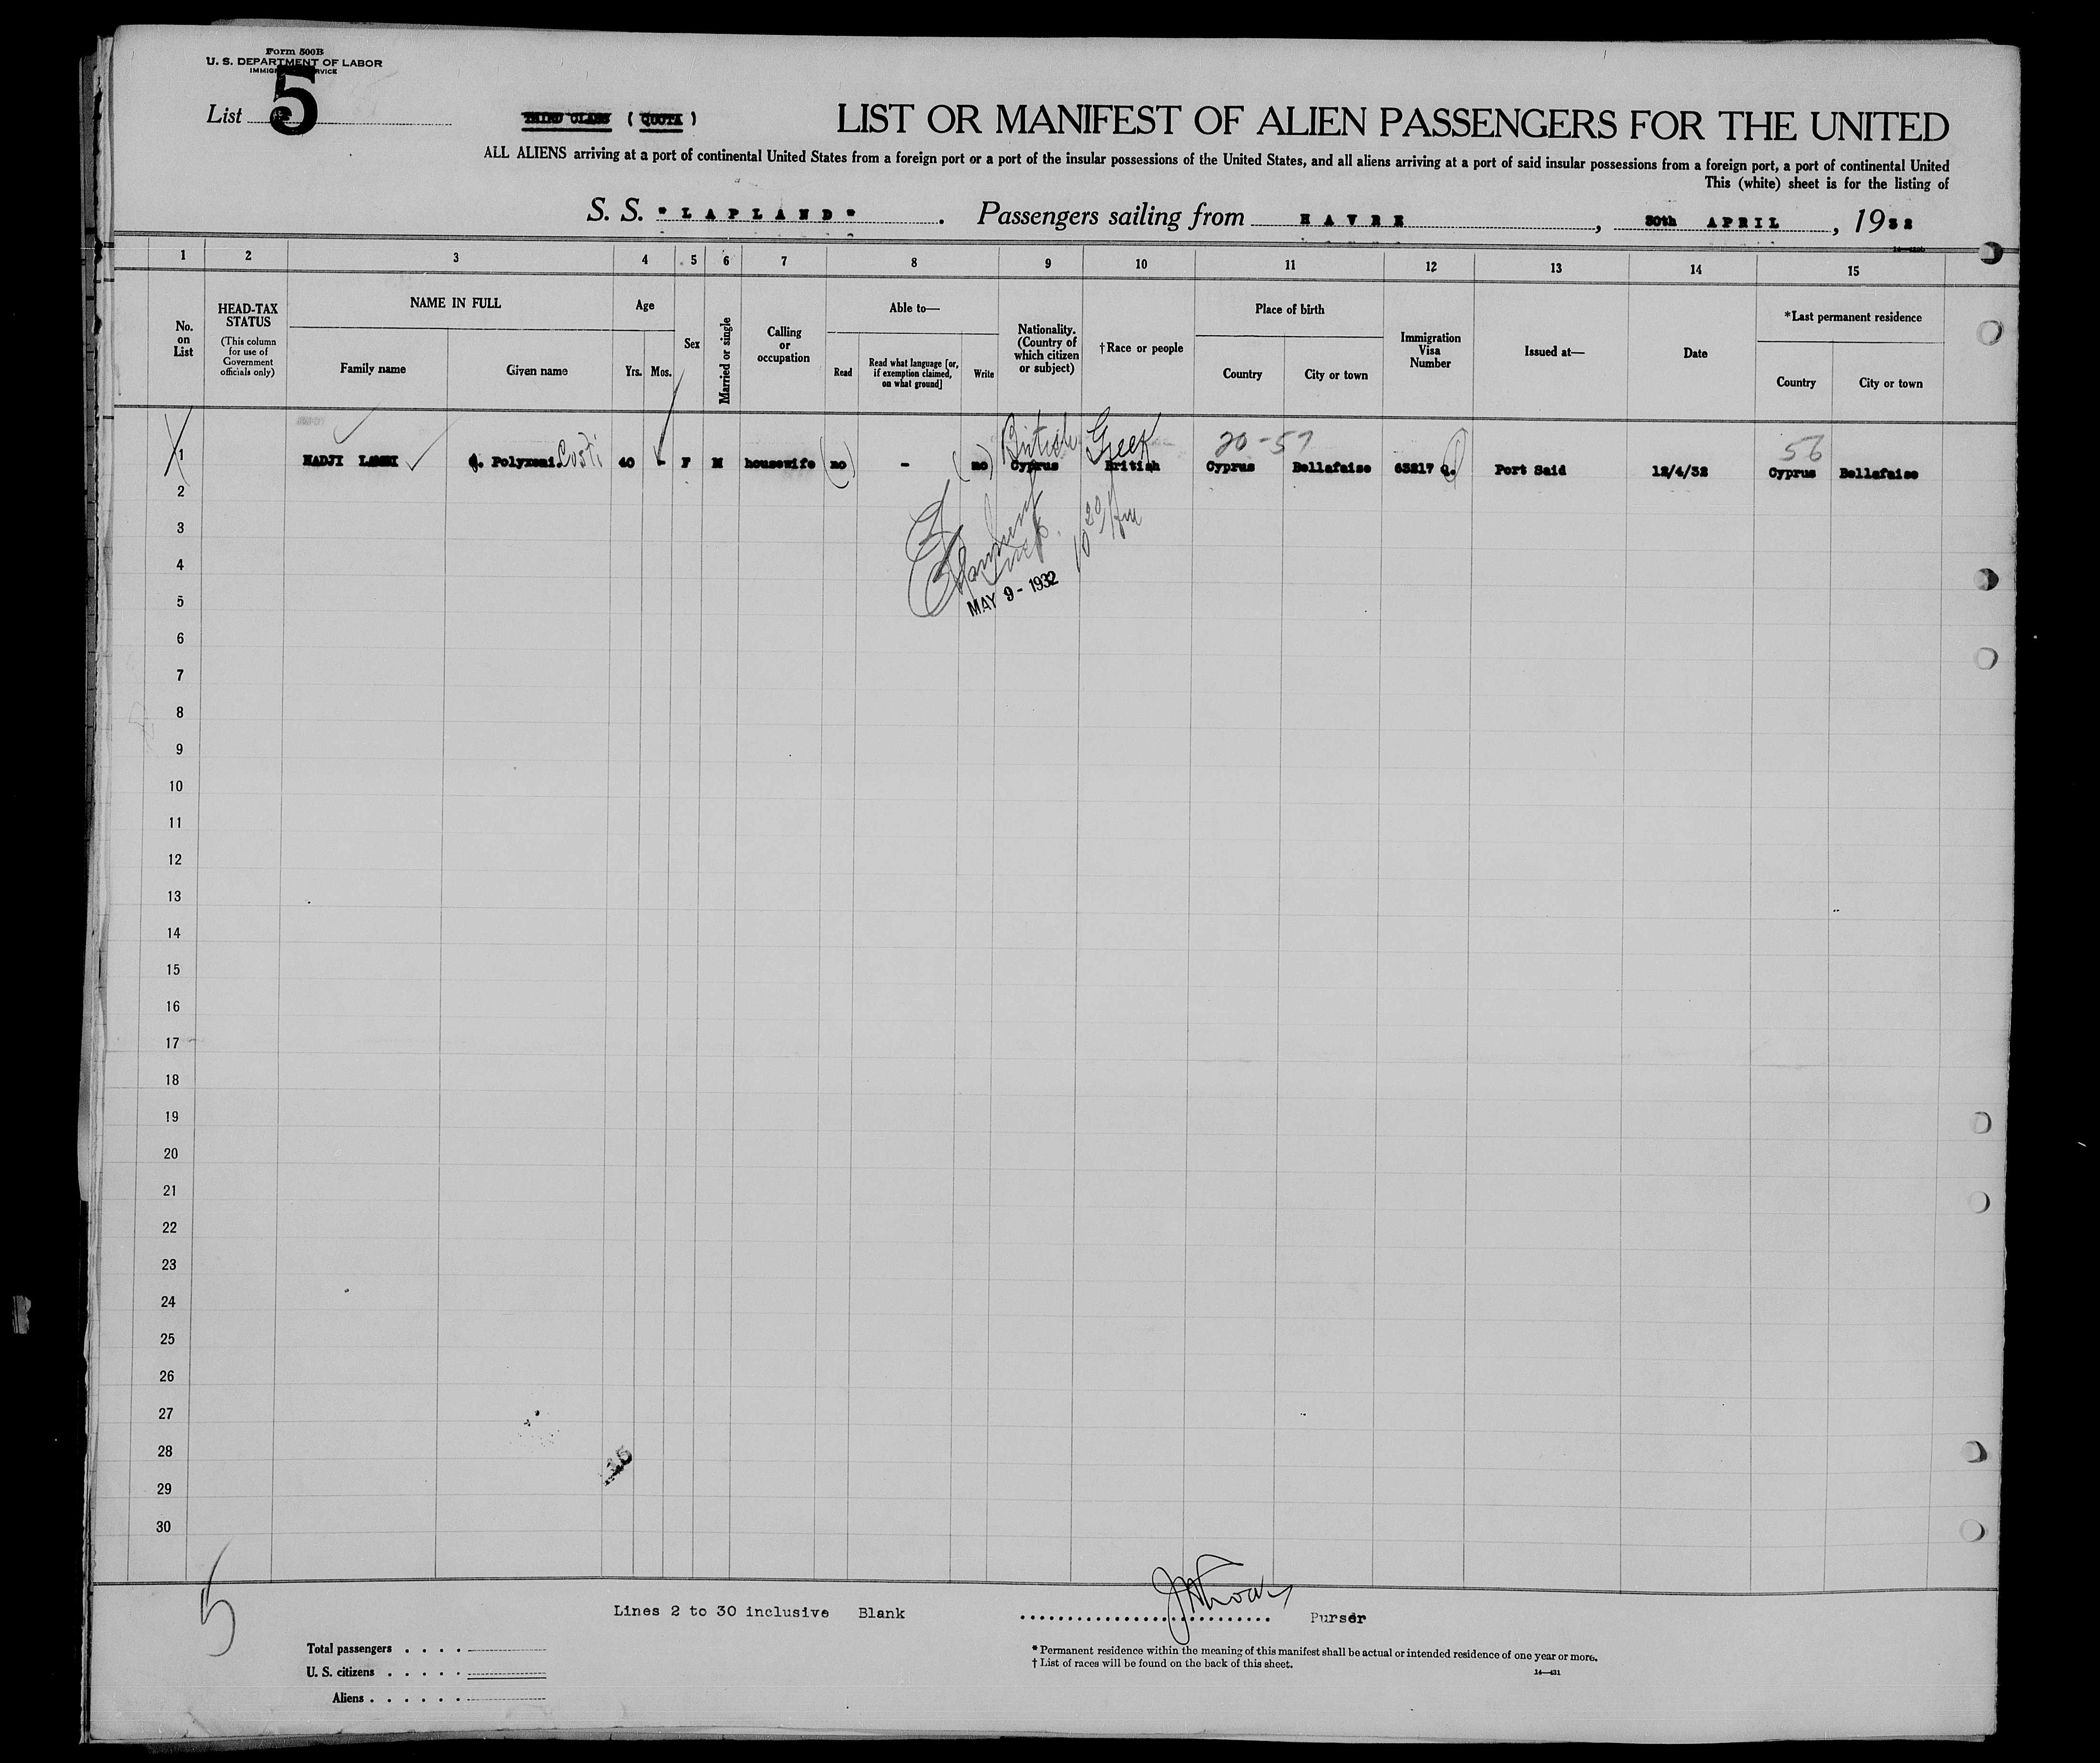 Form 500B
U. S. DEPARTMENT OF LABOR
List 5
THIRD CLASS ( QUOTA )
LIST OR MANIFEST OF ALIEN PASSENGERS FOR THE UNITED
ALL ALIENS arriving at a port of continental United States from a foreign port or a port of the insular possessions of the United States, and all aliens arriving at a port of said insular possessions from a foreign port, a port of continental United
This (white) sheet is for the listing of
S. S. "LAPLAND". Passengers sailing from HAVRE, 30th APRIL, 1932
1 2 3 4 5 6 7 8 9 10 11 12 13 14 15
No. on List
HEAD-TAX STATUS
(This column for use of Government officials only)
NAME IN FULL
Family name
Given name
Age
Yrs.
Mos.
Sex
Married or single
Calling or occupation
Able to—
Read
Read what language [or, if exemption claimed, on what ground]
Write
Nationality. (Country of which citizen or subject)
†Race or people
Place of birth
Country
City or town
Immigration Visa Number
Issued at—
Date
*Last permanent residence
Country
City or town
British Greek 20-57 56
1 HADJI Polyxeni. Costi 40 - F M housewife (no) - (no) Cyprus British Cyprus Bellafaise 63217 Q. Port Said 12/4/32 Cyprus Bellafaise
2
3
4
MAY 9 - 1932
5
6
7
8
9
10
11
12
13
14
15
16
17
18
19
20
21
22
23
24
25
26
27
28
29
30
5
Lines 2 to 30 inclusive Blank
Purser
Total passengers
U. S. citizens
Aliens
* Permanent residence within the meaning of this manifest shall be actual or intended residence of one year or more.
† List of races will be found on the back of this sheet.
14—431